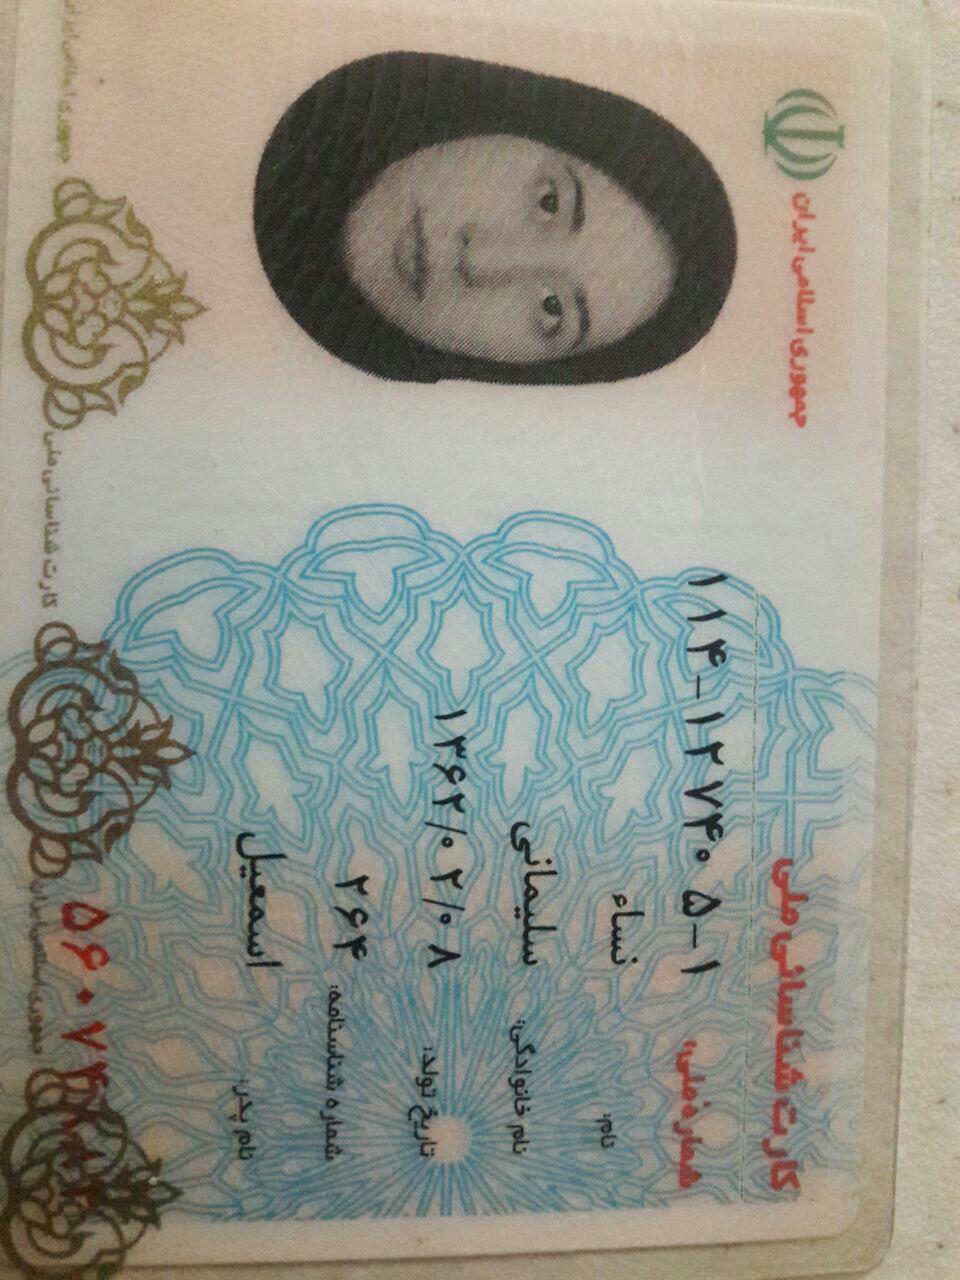 جمهوری اسلامی ایران
کارت شناسائی ملی
شماره ملی: ۱۱۴-۱۲۷۴۰۵-۱
نام: نساء
نام خانوادگی: سلیمانی
تاریخ تولد: ۱۳۶۲/۰۲/۰۸
شماره شناسنامه: ۲۶۴
نام پدر: اسمعیل
کارت شناسائی ملی
جمهوری اسلامی ایران